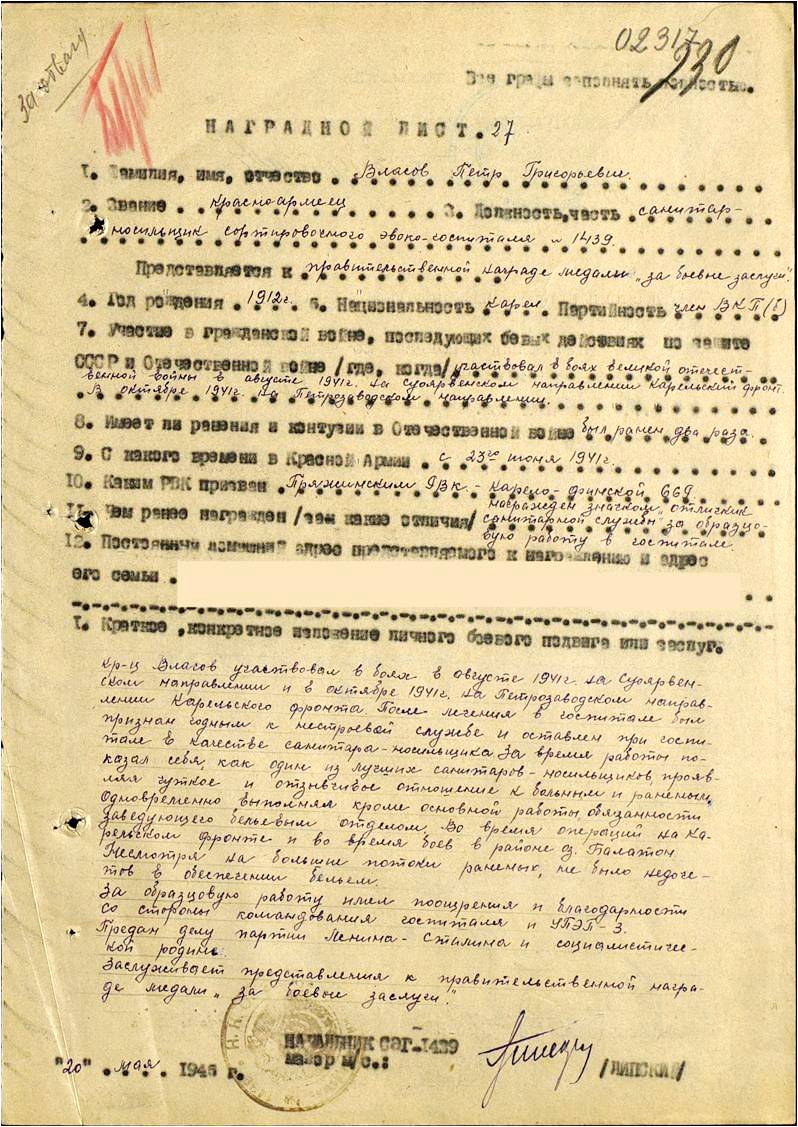 За отвагу
02317
330
Все графы заполнять полностью.
НАГРАДНОЙ ЛИСТ. 27
1. Фамилия, имя, отчество . Власов Петр Григорьевич.
2. Звание . Красноармеец 3. Должность, часть санитар-
носильщик сортировочного эвоко-госпиталя № 1439.
Представляется к правительственной награде медаль „за боевые заслуги".
4. Год рождения . 1912г. 5. Национальность карел. Партийность член ВКП(б)
7. Участие в гражданской войне, последующих боевых действиях по защите
СССР и Отечественной войне /где, когда/ участвовал в боях великой отечест-
венной войны в августе 1941г. на Суоярвенском направлении Карельский фронт.
В октябре 1941г. на Петрозаводском направлении.
8. Имеет ли ранения и контузии в Отечественной войне был ранен два раза.
9. С какого времени в Красной Армии . с 23го июня 1941г.
10. Каким РВК призван Пряжинским РВК - Карело-Финской
11. Чем ранее награжден /зам какие отличия/ награжден значком „отличник
санитарной службы" за образцо-
вую работу в госпитале.
12. Постоянный домашний адрес представляемого к награждению и адрес
его семьи .
I. Краткое, конкретное изложение личного боевого подвига или заслуг.
Кр-ц Власов участвовал в боях в августе 1941г. на Суоярвен-
ском направлении и в октябре 1941г. на Петрозаводском направ-
лении Карельского фронта. После лечения в госпитале был
признан годным к нестроевой службе и оставлен при госпи-
тале в качестве санитара-носильщика. За время работы по-
казал себя, как один из лучших санитаров-носильщиков, прояв-
ляя чуткое и отзывчивое отношение к больным и раненым.
Одновременно выполнял кроме основной работы, обязанности
заведующего бельевым отделом. Во время операций на Ка-
рельском фронте и во время боев в районе оз. Балатон.
Несмотря на большие потоки раненых, не было недоче-
тов в обеспечении бельем.
За образцовую работу имел поощрения и благодарности
со стороны командования госпиталя и УПЭП-3.
Предан делу партии Ленина-Сталина и социалистиче-
кой родине.
Заслуживает представления к правительственной награ-
де медали „за боевые заслуги".
НАЧАЛЬНИК СЭГ-1439
майор м/с.:
"20" . мая . 1945 г.
/ЛИПСКИЙ/